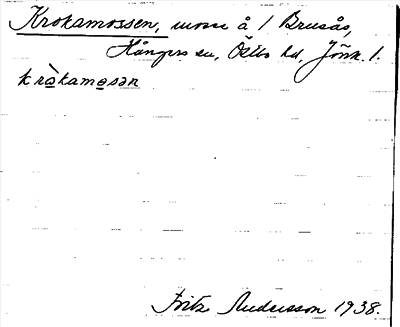 Krokamossen, mosse å 1 Brusås,
Kångers sn, Östbo hd, Jönk. l.
kràkamosən
Fritz Andersson 1938.